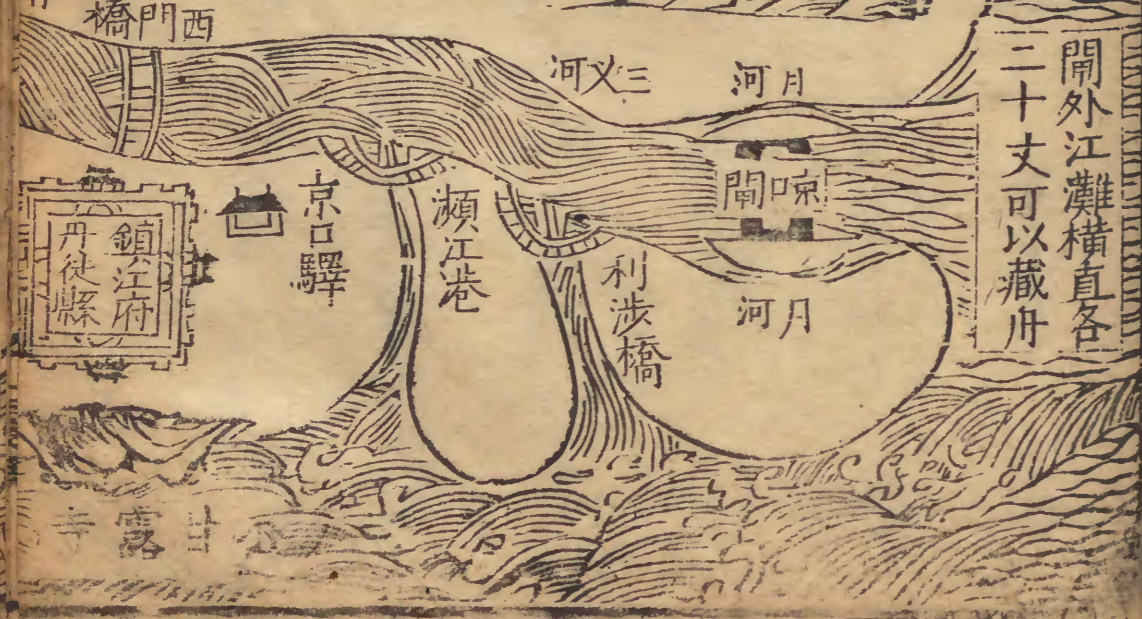 閘外江灘橫直各
二十丈可以藏舟
月河
三义河
西門橋
㖫閘
月河
利涉橋
瀕江巷
京口驛
鎮江府
丹徒縣
甘露寺